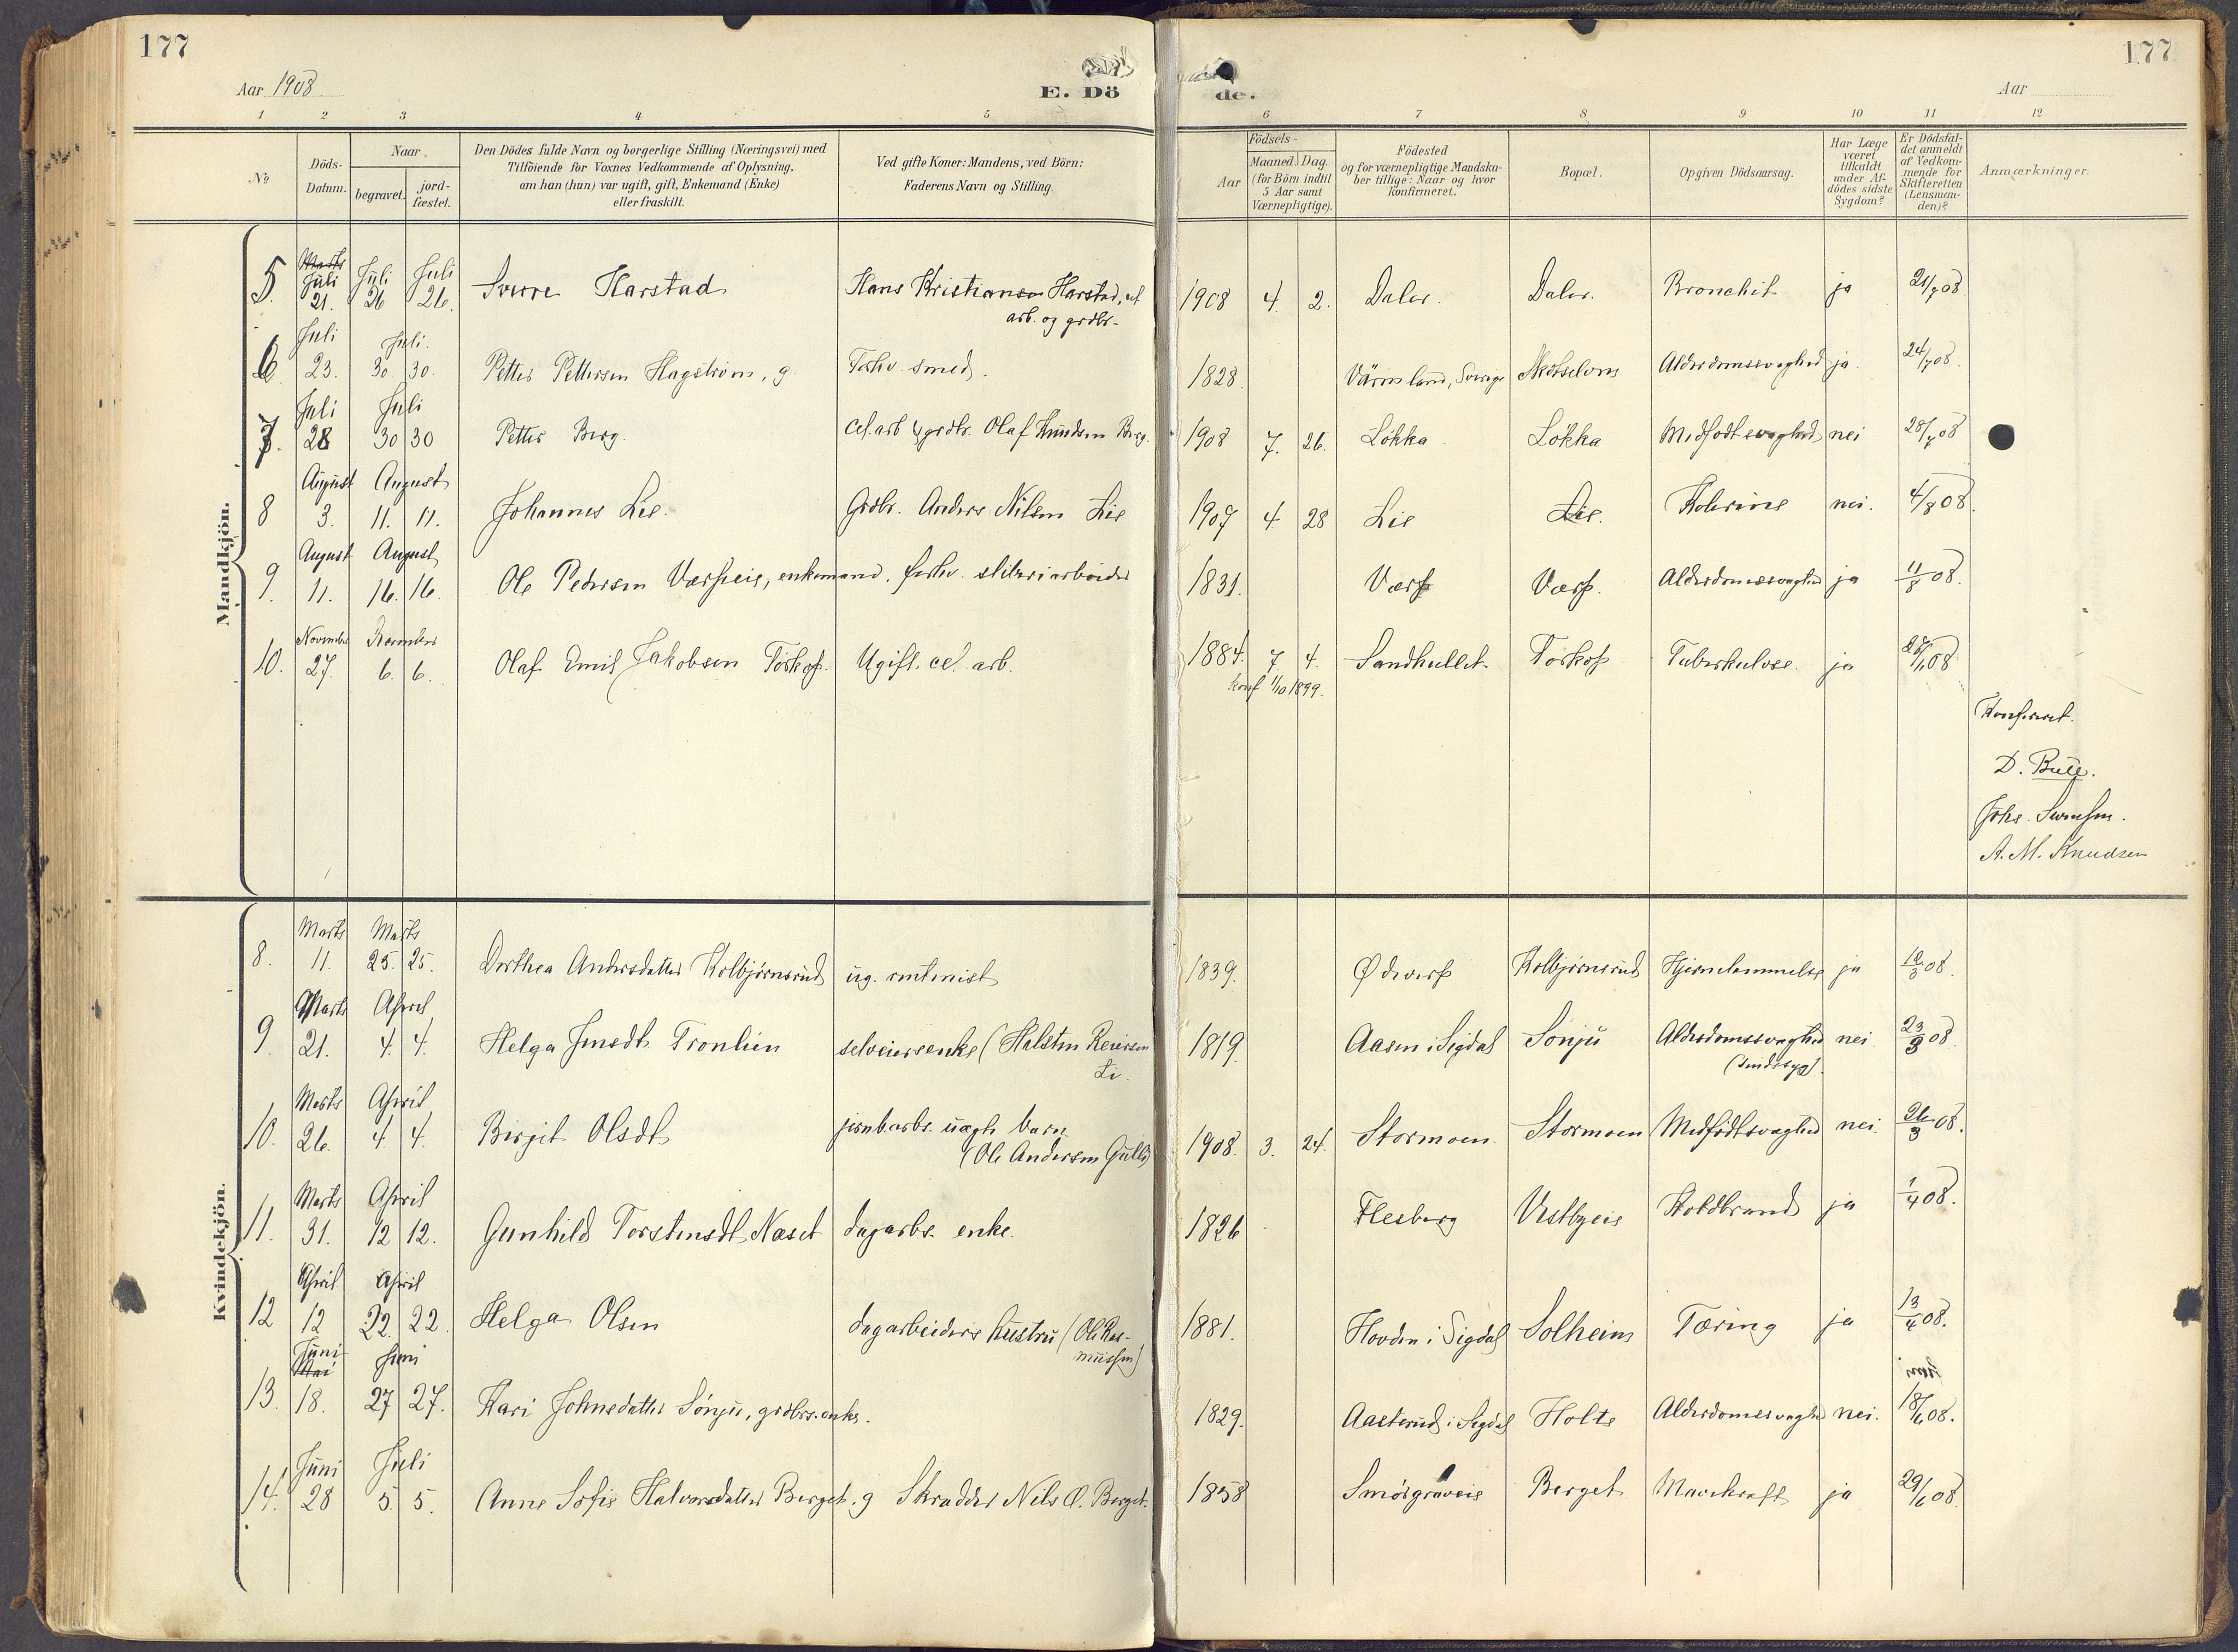 177
177
Aar 1908
E. Dö
de.
Aar
1 2 3 4 5 6 7 8 9 10 11 12
No
Döds-
Datum.
Naar
begravet.
jord-
fæstet.
Den Dödes fulde Navn og borgerlige Stilling (Næringsvei) med
Tilföiende for Voxnes Vedkommende af Oplysning,
om han (hun) var ugift, gift, Enkemand (Enke)
eller fraskilt.
Ved gifte Koner: Mandens, ved Börn:
Faderens Navn og Stilling.
Födsels-
Aar
Maaned. Dag.
(for Börn indtil
5 Aar samt
Værnepligtige).
Födested
og for værnepligtige Mandska-
ber tillige: Naar og hvor
konfirmeret.
Bopæl.
Opgiven Dödsaarsag.
Har Læge
været
tilkaldt
under Af-
dödes sidste
Sygdom?
Er Dödsfal-
det anmeldt
af Vedkom-
mende for
Skifteretten
(Lensman-
den)?
Anmærkninger.
Mandkjön.
Marts
Juli Juli Juli
5. 21. 26 26. Sverre Harstad Hans Kristiansen Harstad, cel 1908 4. 2. Daler. Daler. Bronchit ja 21/7 08
arb. og grdbr.
Juli Juli.
6. 23. 30. 30. Petter Pettersen Hagström, g. Forhv. smed. 1828. Värmland, Sverige Skotselven Alderdomssvaghed ja 24/7 08.
Juli Juli
7. 28 30 30 Petter Berg. Cel.arb & grdbr. Olaf Knudsen Berg. 1908 7. 26. Løkka Løkka Medfødt svaghed nei 28/7 08
August August
8 3. 11. 11. Johannes Lie. Grdbr. Anders Nilsen Lie 1907 4 28 Lie Lie. Kolerine nei. 4/8 08.
August August
9. 11. 16. 16. Ole Pedersen Værpeie, enkemand. forhv. sliberiarbeider 1831. Værp Værp. Alderdomssvaghed ja 11/8 08.
November December
10. 27. 6. 6. Olaf Emil Jakobsen Torkop. Ugift. cel. arb. 1884. 7 4. Sandhullet. Torkop Tuberkulose. ja 28/11 08
konf 1/10 1899.
Konfereret.
D. Bull.
Johs. Svensen.
A. M. Knudsen
Kvindekjön.
Marts Marts
8. 11. 25. 25. Dorthea Andersdatter Kolbjørnsrud ug. rentenist 1839. Ødeverp Kolbjørnsrud Hjernelammelse ja 12/3 08.
Marts April
9. 21. 4. 4. Helga Jensdt. Tronlien selveiersenke (Halsten Reiersen 1819. Aasen i Sigdal Sønju Alderdomssvaghed nei 23/3 08.
Li. (sindssyg)
Marts April
10. 26. 4. 4. Bergit Olsdt. jernb.arbs. uægte barn 1908. 3. 24. Stormoen Stormoen Medfødt svaghed nei. 26/3 08.
(Ole Andersen Gulli)
Marts April
11. 31. 12 12. Gunhild Torstensdt. Næset dagarbs. enke. 1826 Flesberg Vestbyeie Koldbrand ja 1/4 08.
April April
12 12 22. 22. Helga Olsen dagarbeiders hustru (Ole Ras- 1881. Hovden i Sigdal Solheim Tæring ja 13/4 08.
mussen)
Juni
Mai Juni
13. 18. 27 27. Kari Johnsdatter Sønju, grdbrs. enke. 1829. Aasterud i Sigdal Holte Alderdomssvaghed nei. 18/6 08.
Juni Juli
14. 28 5. 5. Anne Sofie Halvorsdatter Berget. g Skrædder Nils O. Berget. 1858 Smörgraveie Berget Mavekræft ja 29/6 08.